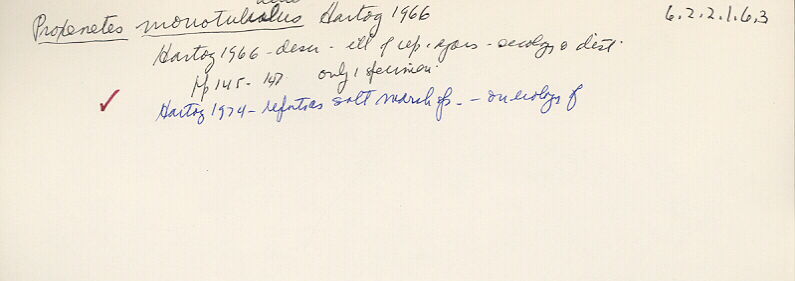 Proxenetes monotubulus Hartog 1966 6.2.2.1.6.3
Hartog 1966 - descr - ill of rep. organs - ecology & dist.
pp 145 - 147 only 1 specimen.
Hartog 1974 - refer to as salt marsh sp. - on ecology of